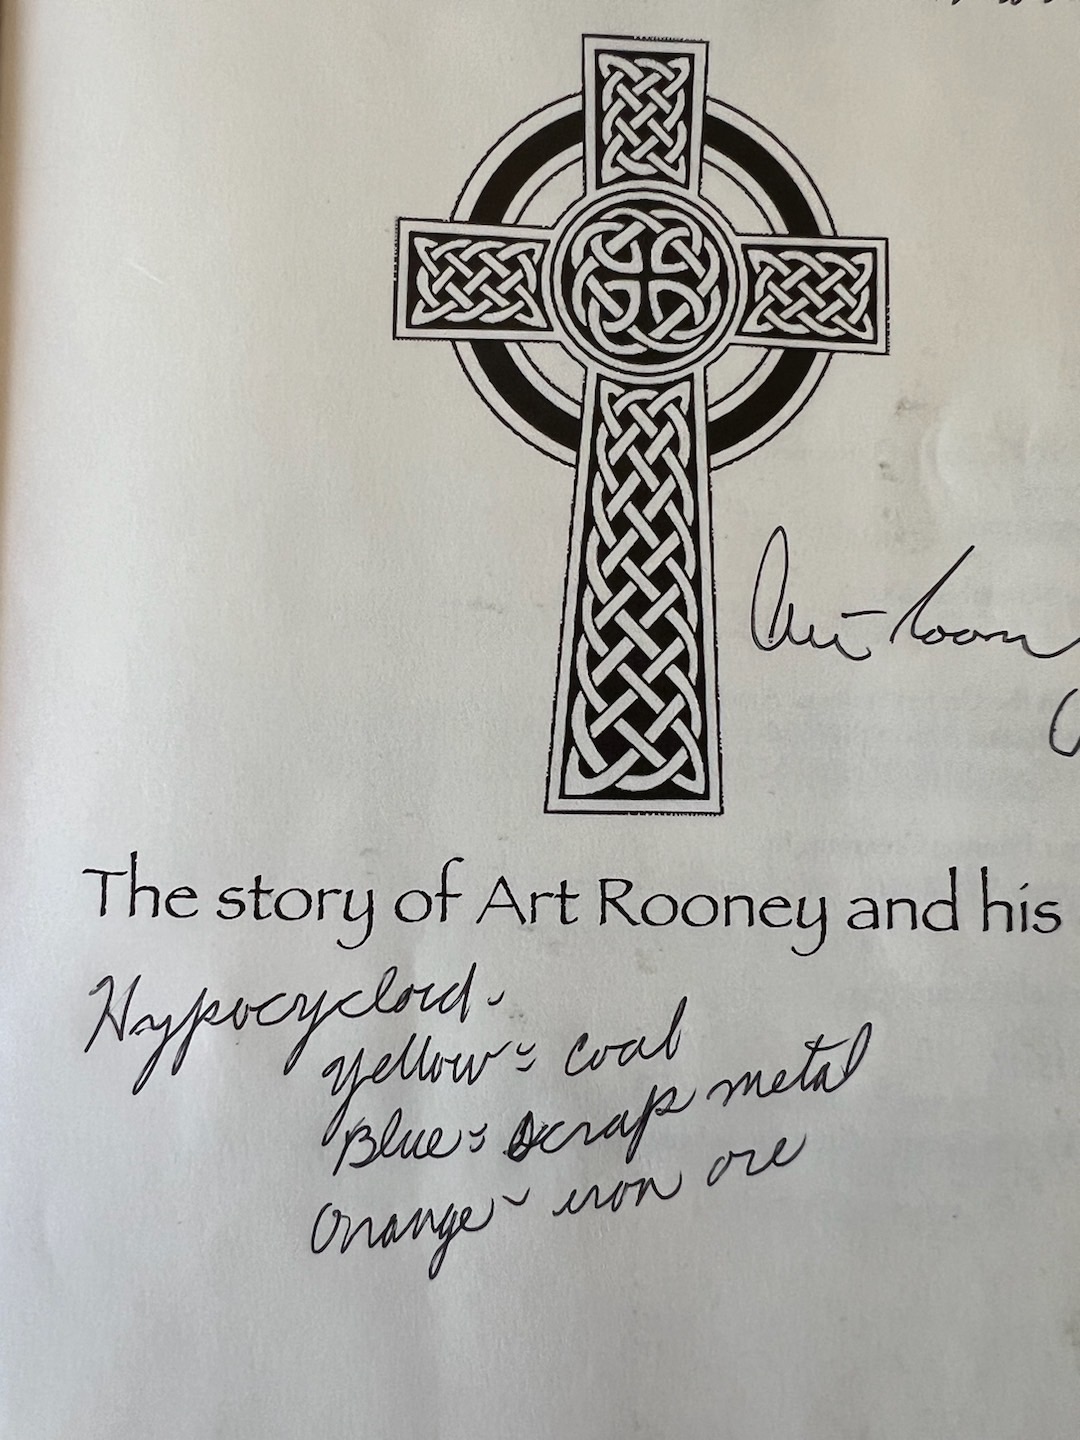 Art Rooney
The story of Art Rooney and his
Hypocycloid -
Yellow - coal
Blue - scrap metal
Orange - iron ore